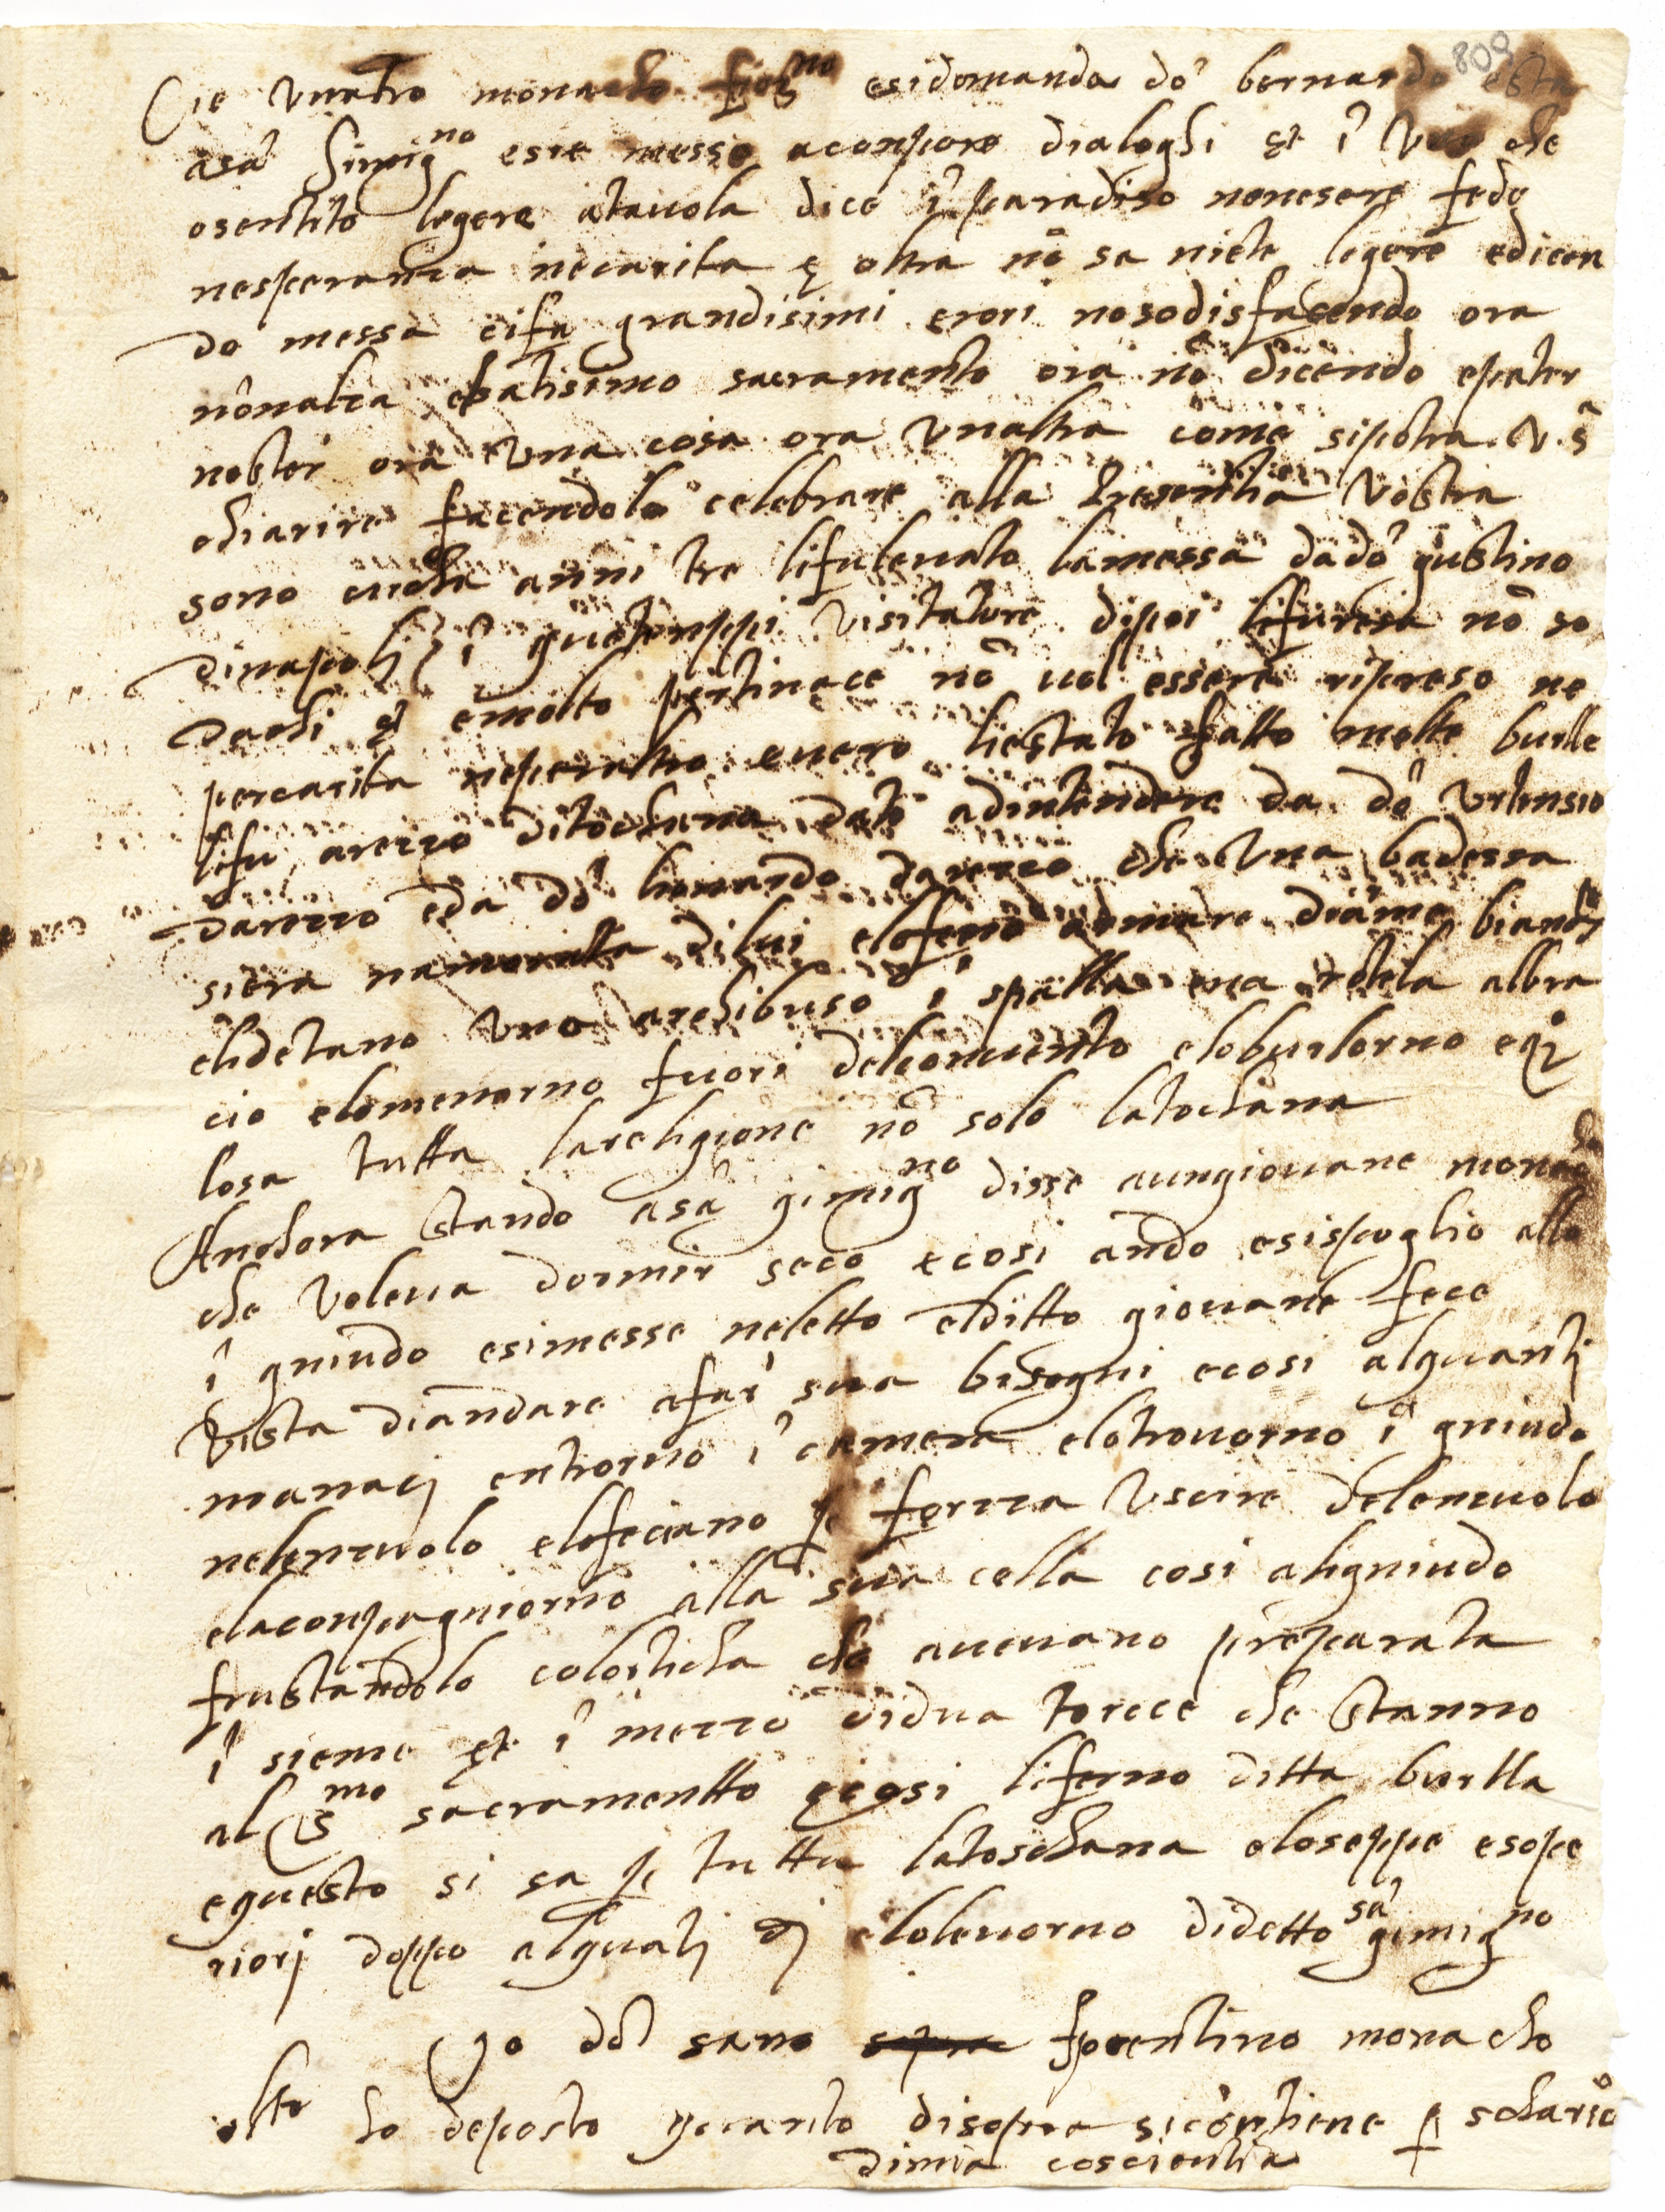 Cie unatro monacho fior^no esidomanda dō bernardo esta
asā Simig^no esie messo aconpore dialoghi et ī un che
osentito legere atavola dice ī paradiso nonesere fede
nesperanza necarita e oltra nō sa niete legere edicen
do messa cifa grandisimi erori nosodisfacendo ora
nōnalza elsatisimo sacramento ora nō dicendo epater
noster ora una cosa ora unaltra come sipotra V. S
chiarire facendolo celebrare alla presentia Vostra
sono circha anni tre lifulevato lamessa dadō gustino
dinapoli ī visitatore dipoi lifuresa nō so
dachi et emolto pertinace nō vol essere ripreso ne
percarita neperaltro evero liestato fatto molte burle
lifu arezzo ditochana dato adintendere da dō
darezzo eda dō lionardo darezzo che una badessa
siera namorata dilui elofeno armare diarme bianche
elidetano uno archibuso ī spalla una rotela albra
cio elomenorno fuori delconvento eloburlorno eq°
losa tutta lareligione nō solo latochana
Anchora stando asā gimig^no disse aungiovane monacho
che voleva dormir seco ecosi ando esispoglio allo
ī gniudo esimesse neletto elditto giovane fece
vista diandare afar sua bisogni ecosi alquanti
manacj entrorno ī camera elotrovorno ī gniudo
nelenzuolo elofeciano p forzza uscire delenzuolo
elaconpagniorno alla sua cella cosi aligniudo
frustandolo colorticha che avevano preparata
ī sieme et ī mezzo didua torcce che stanno
al S^mo sacramentto ecosi liferno ditta burlla
equesto si sa p tutta latoschana eloseppe esope
riorj doppo alqualj dj elolevorno didetto sā gimig^no
Jo dō sano fiorentino monacho
ho deposto quanto disopra sicontiene p scharicō
dimia coscientia
809